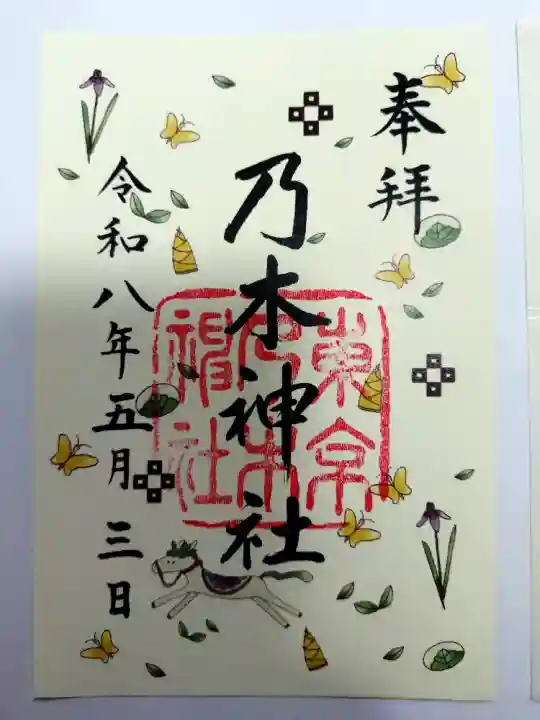 奉拝
乃木神社
東京
乃木
神社
令和八年五月三日